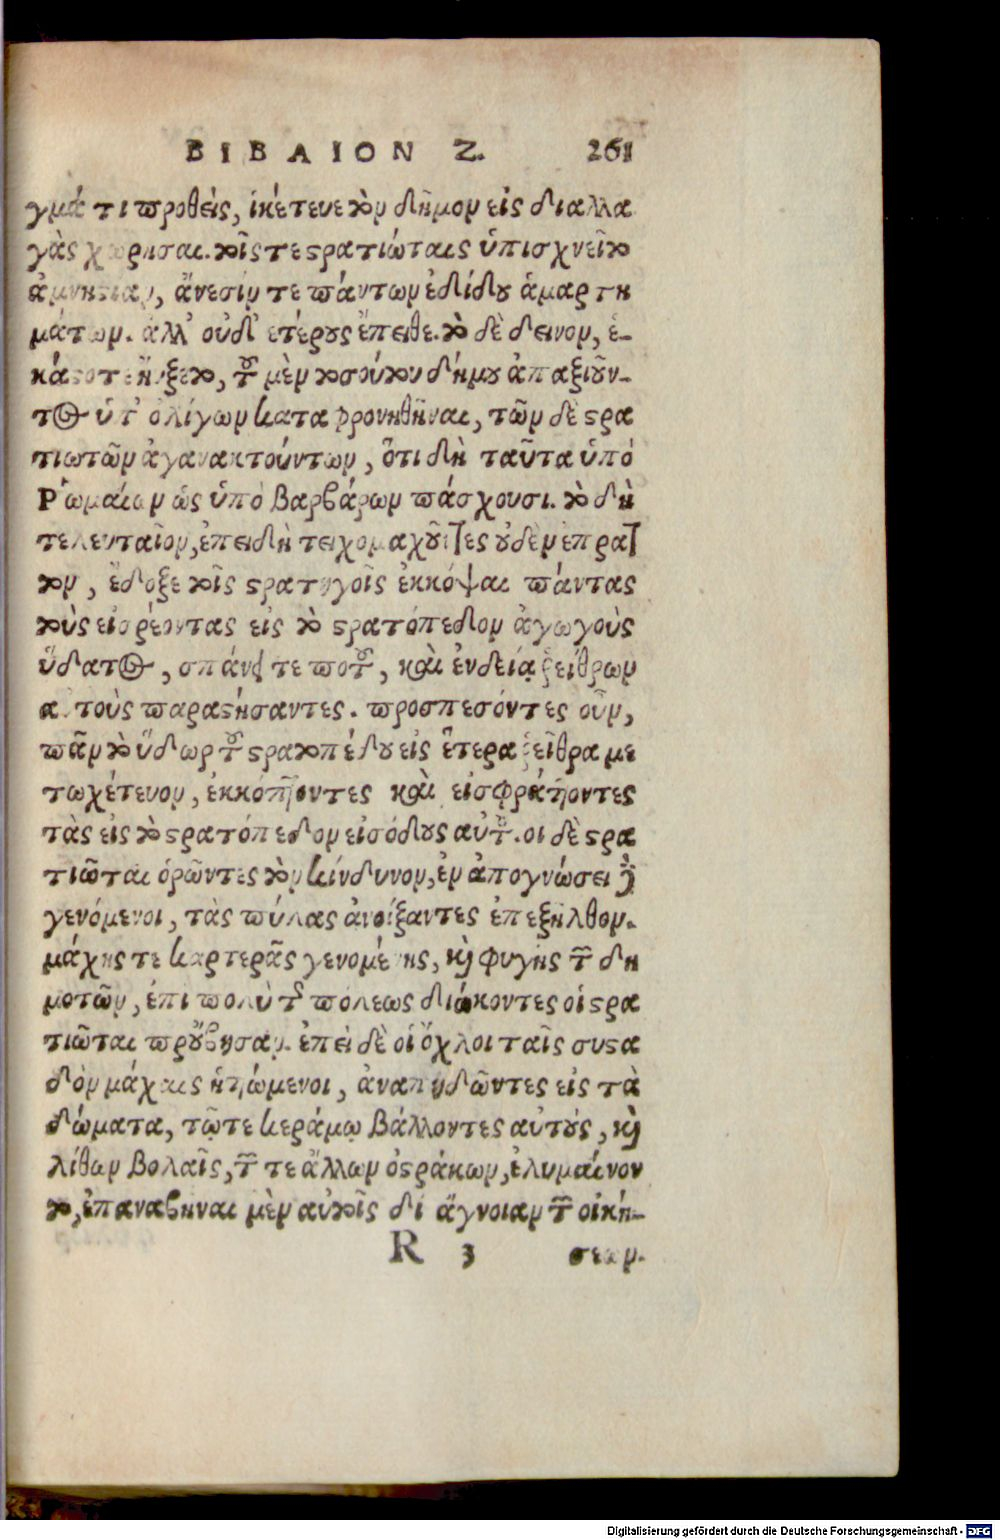 ΒΙΒΛΙΟΝ Ζ. 261
γμά τι προθεὶς, ἱκέτευε τὸν δῆμον εἰς διαλλα
γὰς χωρῆσαι. τοῖς τε στρατιώταις ὑπισχνεῖτο
ἀμνηστίαν, ἄνεσίν τε πάντων ἐδίδου ἁμαρτη
μάτων. ἀλλ' οὐδ' ετέρους ἔπειθε. τὸ δὲ δεινον, ἑ-
κάστοτε ηὔξετο, τοῦ μὲν τοσούτου δήμου ἀπαξιοῦν-
τος ὑπ' ὀλίγων καταφρονηθῆναι, τῶν δὲ στρα
τιωτῶν ἀγανακτούντων, ὅτι δὴ ταῦτα ὑπό
Ῥωμαίων ὡς ὑπὸ βαρβάρων πάσχουσι. τὸ δὴ
τελευταῖον, ἐπειδὴ τειχομαχοῦντες οὐδὲν ἐπρατ
τον, ἔδοξε τοῖς στρατηγοῖς ἐκκόψαι πάντας
τοὺς εἰσρέοντας εἰς τὸ στρατόπεδον ἀγωγοὺς
ὕδατος, σπάνει τε ποτοῦ, καὶ ἐνδείᾳ ῥείθρων
αὐτοὺς παραστήσαντες. προσπεσόντες οὖν,
πᾶν τὸ ὕδωρ τοῦ στρατοπέδου εἰς ἕτερα ῥεῖθρα με
τωχέτευον, ἐκκόπτοντες καὶ εἰσφράττοντες
τὰς εἰς τὸ στρατόπεδον εἰσόδους αὐτοῦ. οι δὲ στρα
τιῶται ὁρῶντες τὸν κίνδυνον, ἐν ἀπογνώσει
γενόμενοι, τὰς πύλας ἀνοίξαντες ἐπεξῆλθον.
μάχης τε καρτερᾶς γενομένης, καὶ φυγῆς τῶν δη
μοτῶν, ἐπι πολὺ τῆς πόλεως διώκοντες οἱ στρα
τιῶται προὔβησαν. ἐπεὶ δὲ οἱ ὄχλοι ταῖς συστα
δὸν μάχαις ἡττώμενοι, ἀναπηδῶντες εἰς τὰ
δώματα, τῷ τε κεράμῳ βάλλοντες αὐτοὺς, καὶ
λίθων βολαῖς, τῶν τε ἄλλων ὀστράκων, ἐλυμαίνον
το, ἐπαναβῆναι μὲν αὐτοῖς δι ἄγνοιαν τῶν οἰκή-
R 3 σεων.
Digitalisierung gefördert durch die Deutsche Forschungsgemeinschaft - DFG